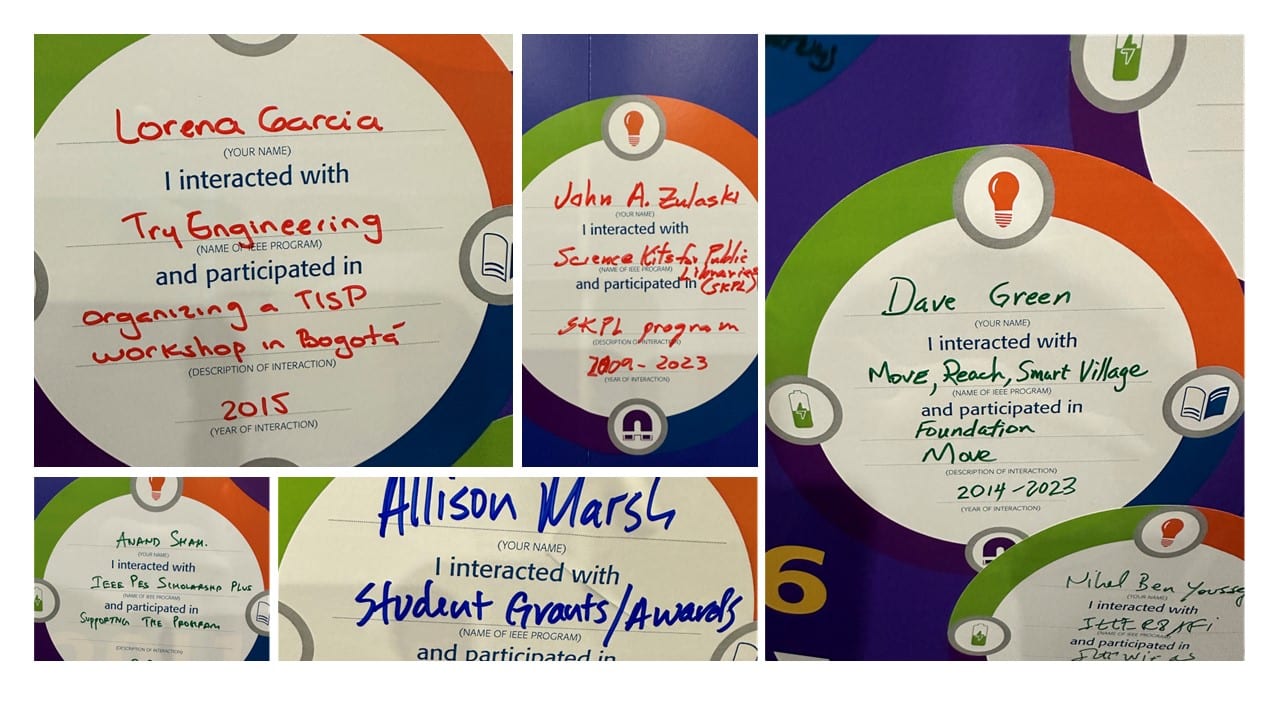 Lorena Garcia
(YOUR NAME)
I interacted with
Try Engineering
(NAME OF IEEE PROGRAM)
and participated in
organizing a TISP
workshop in Bogotá
(DESCRIPTION OF INTERACTION)
2015
(YEAR OF INTERACTION)
John A. Zulaski
(YOUR NAME)
I interacted with
Science Kits for Public
Libraries
(NAME OF IEEE PROGRAM)
and participated in
(SKPL)
SKPL program
(DESCRIPTION OF INTERACTION)
2009-2023
(YEAR OF INTERACTION)
Dave Green
(YOUR NAME)
I interacted with
Move, Reach, Smart Village
(NAME OF IEEE PROGRAM)
and participated in
Foundation
Move
(DESCRIPTION OF INTERACTION)
2014-2023
(YEAR OF INTERACTION)
6
Nihel Ben
(YOUR NAME)
I interacted with
IEEE R8
(NAME OF IEEE PROGRAM)
and participated in
ANAND SHAH.
(YOUR NAME)
I interacted with
IEEE PES SCHOLARSHIP PLUS
(NAME OF IEEE PROGRAM)
and participated in
SUPPORTING THE PROGRAM
(DESCRIPTION OF INTERACTION)
Allison Marsh
(YOUR NAME)
I interacted with
Student Grants/Awards
(NAME OF IEEE PROGRAM)
and participated in